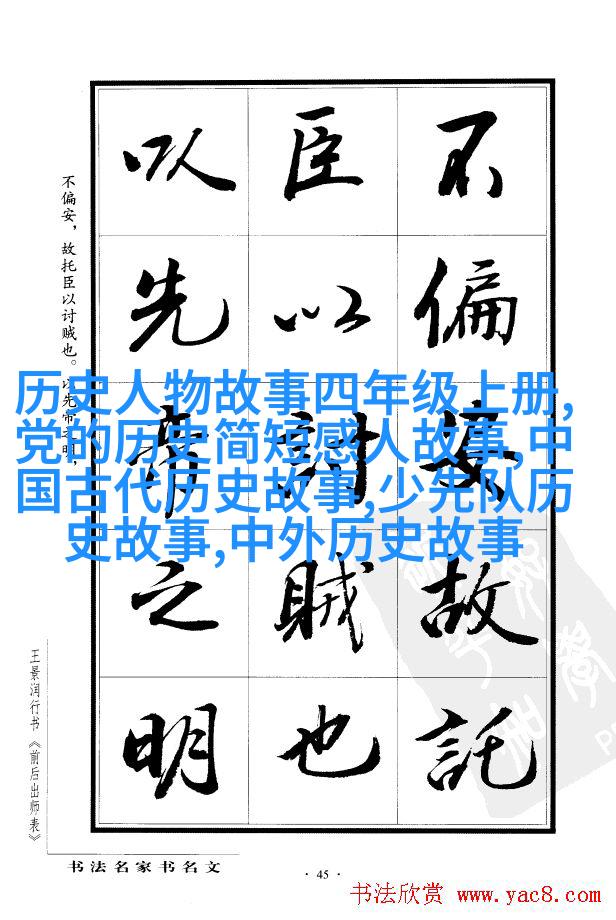 不偏安故託
臣以討賊也
以先帝之明
不偏安，故托臣以讨贼也。以先帝之明，
历史人物故事四年级上册,
党的历史简短感人故事,中
国古代历史故事,少先队历
史故事,中外历史故事
王景润行书《前后出师表》
书法名家书名文
·45·
书法欣赏 www.yac8.com